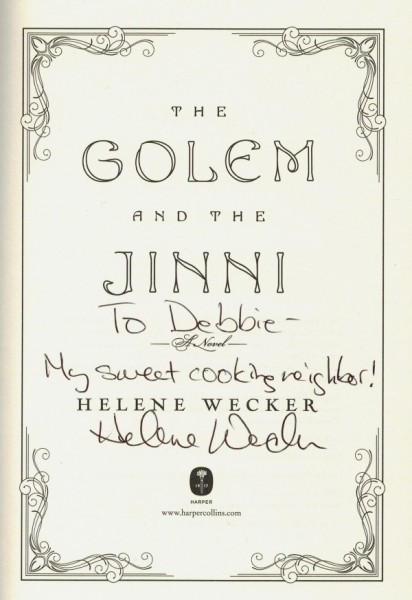 THE
GOLEM
AND THE
JINNI
To Debbie -
A Novel
My sweet cooking neighbor!
HELENE WECKER
Helene Wecker
1817
HARPER
www.harpercollins.com